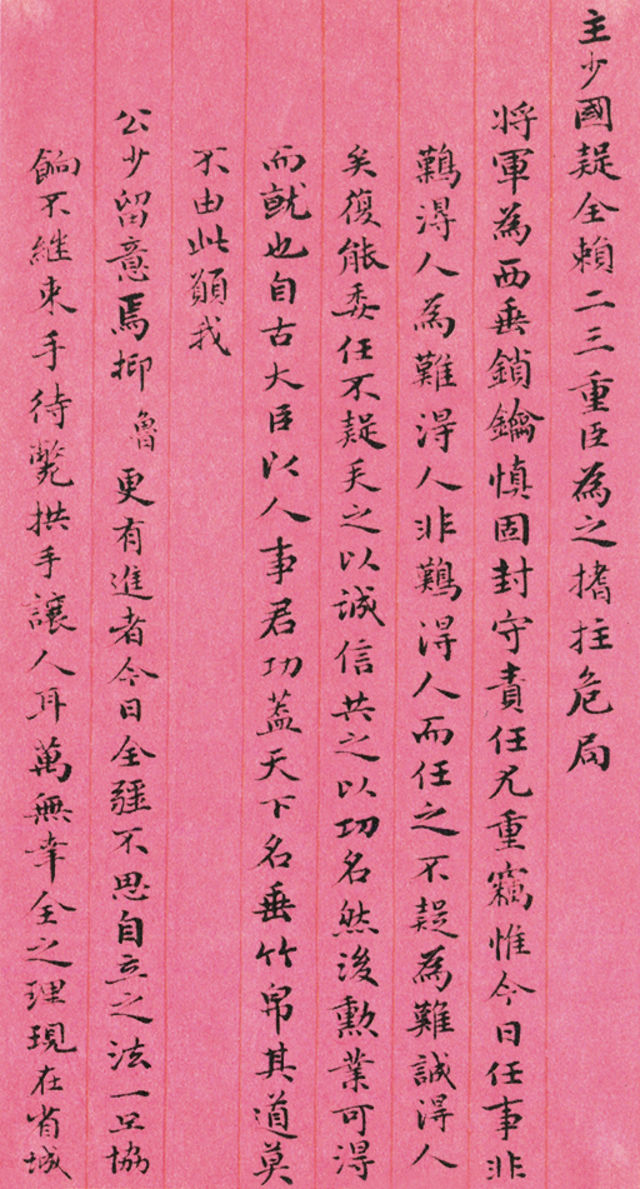 主少國疑全賴二三重臣為之搘拄危局
將軍為西垂鎖鑰慎固封守責任尤重竊惟今日任事非
鷄得人為難得人非鷄得人而任之不疑為難誠得人
矣復能委任不疑矢之以誠信共之以功名然後勳業可得
而就也自古大臣以人事君功蓋天下名垂竹帛其道莫
不由此願我
公少留意焉抑魯更有進者今日全疆不思自立之法一旦協
餉不繼束手待斃拱手讓人耳萬無幸全之理現在省城